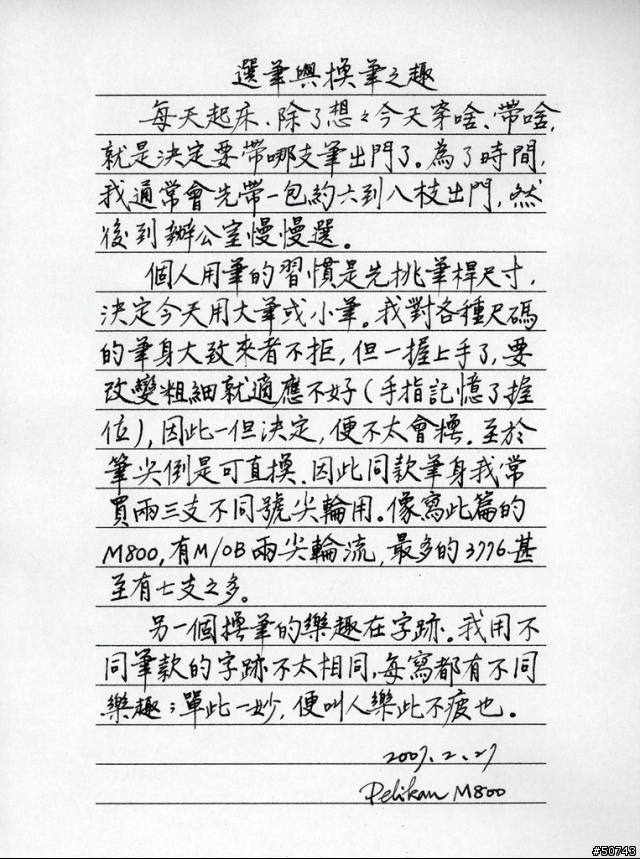 選筆與換筆之趣
每天起床、除了想々今天穿啥、帶啥,
就是決定要帶哪支筆出門了。為了時間,
我通常會先帶一包約六到八枝出門,然
後到辦公室慢慢選。
個人用筆的習慣是先挑筆桿尺寸,
決定今天用大筆或小筆。我對各種尺碼
的筆身大致來者不拒,但一握上手了,要
改變粗細就適應不好(手指記憶了握
位),因此一但決定,便不太會換。至於
筆尖倒是可直換、因此同款筆身我常
買兩三支不同號尖輪用。像寫此篇的
M800,有M/OB兩尖輪流,最多的3776甚
至有七支之多。
另一個換筆的樂趣在字跡。我用不
同筆款的字跡不太相同,每寫都有不同
樂趣;單此一妙,便叫人樂此不疲也。
2007.2.27
Pelikan M800
#50743